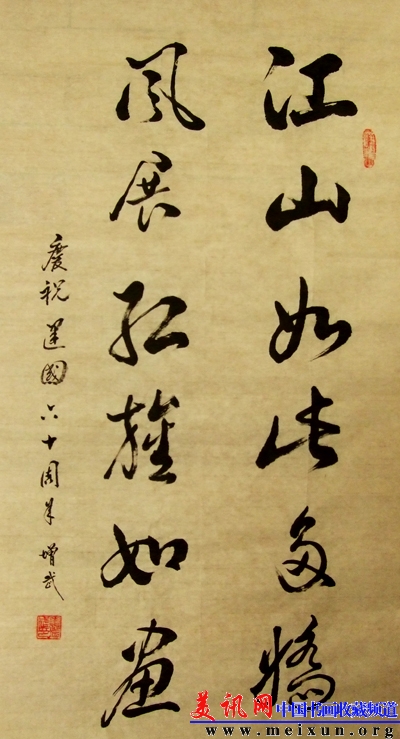 江山如此多嬌
風展紅旗如畫
慶祝建國六十周年 增武
美讯网 中国书画收藏频道
www.meixun.org